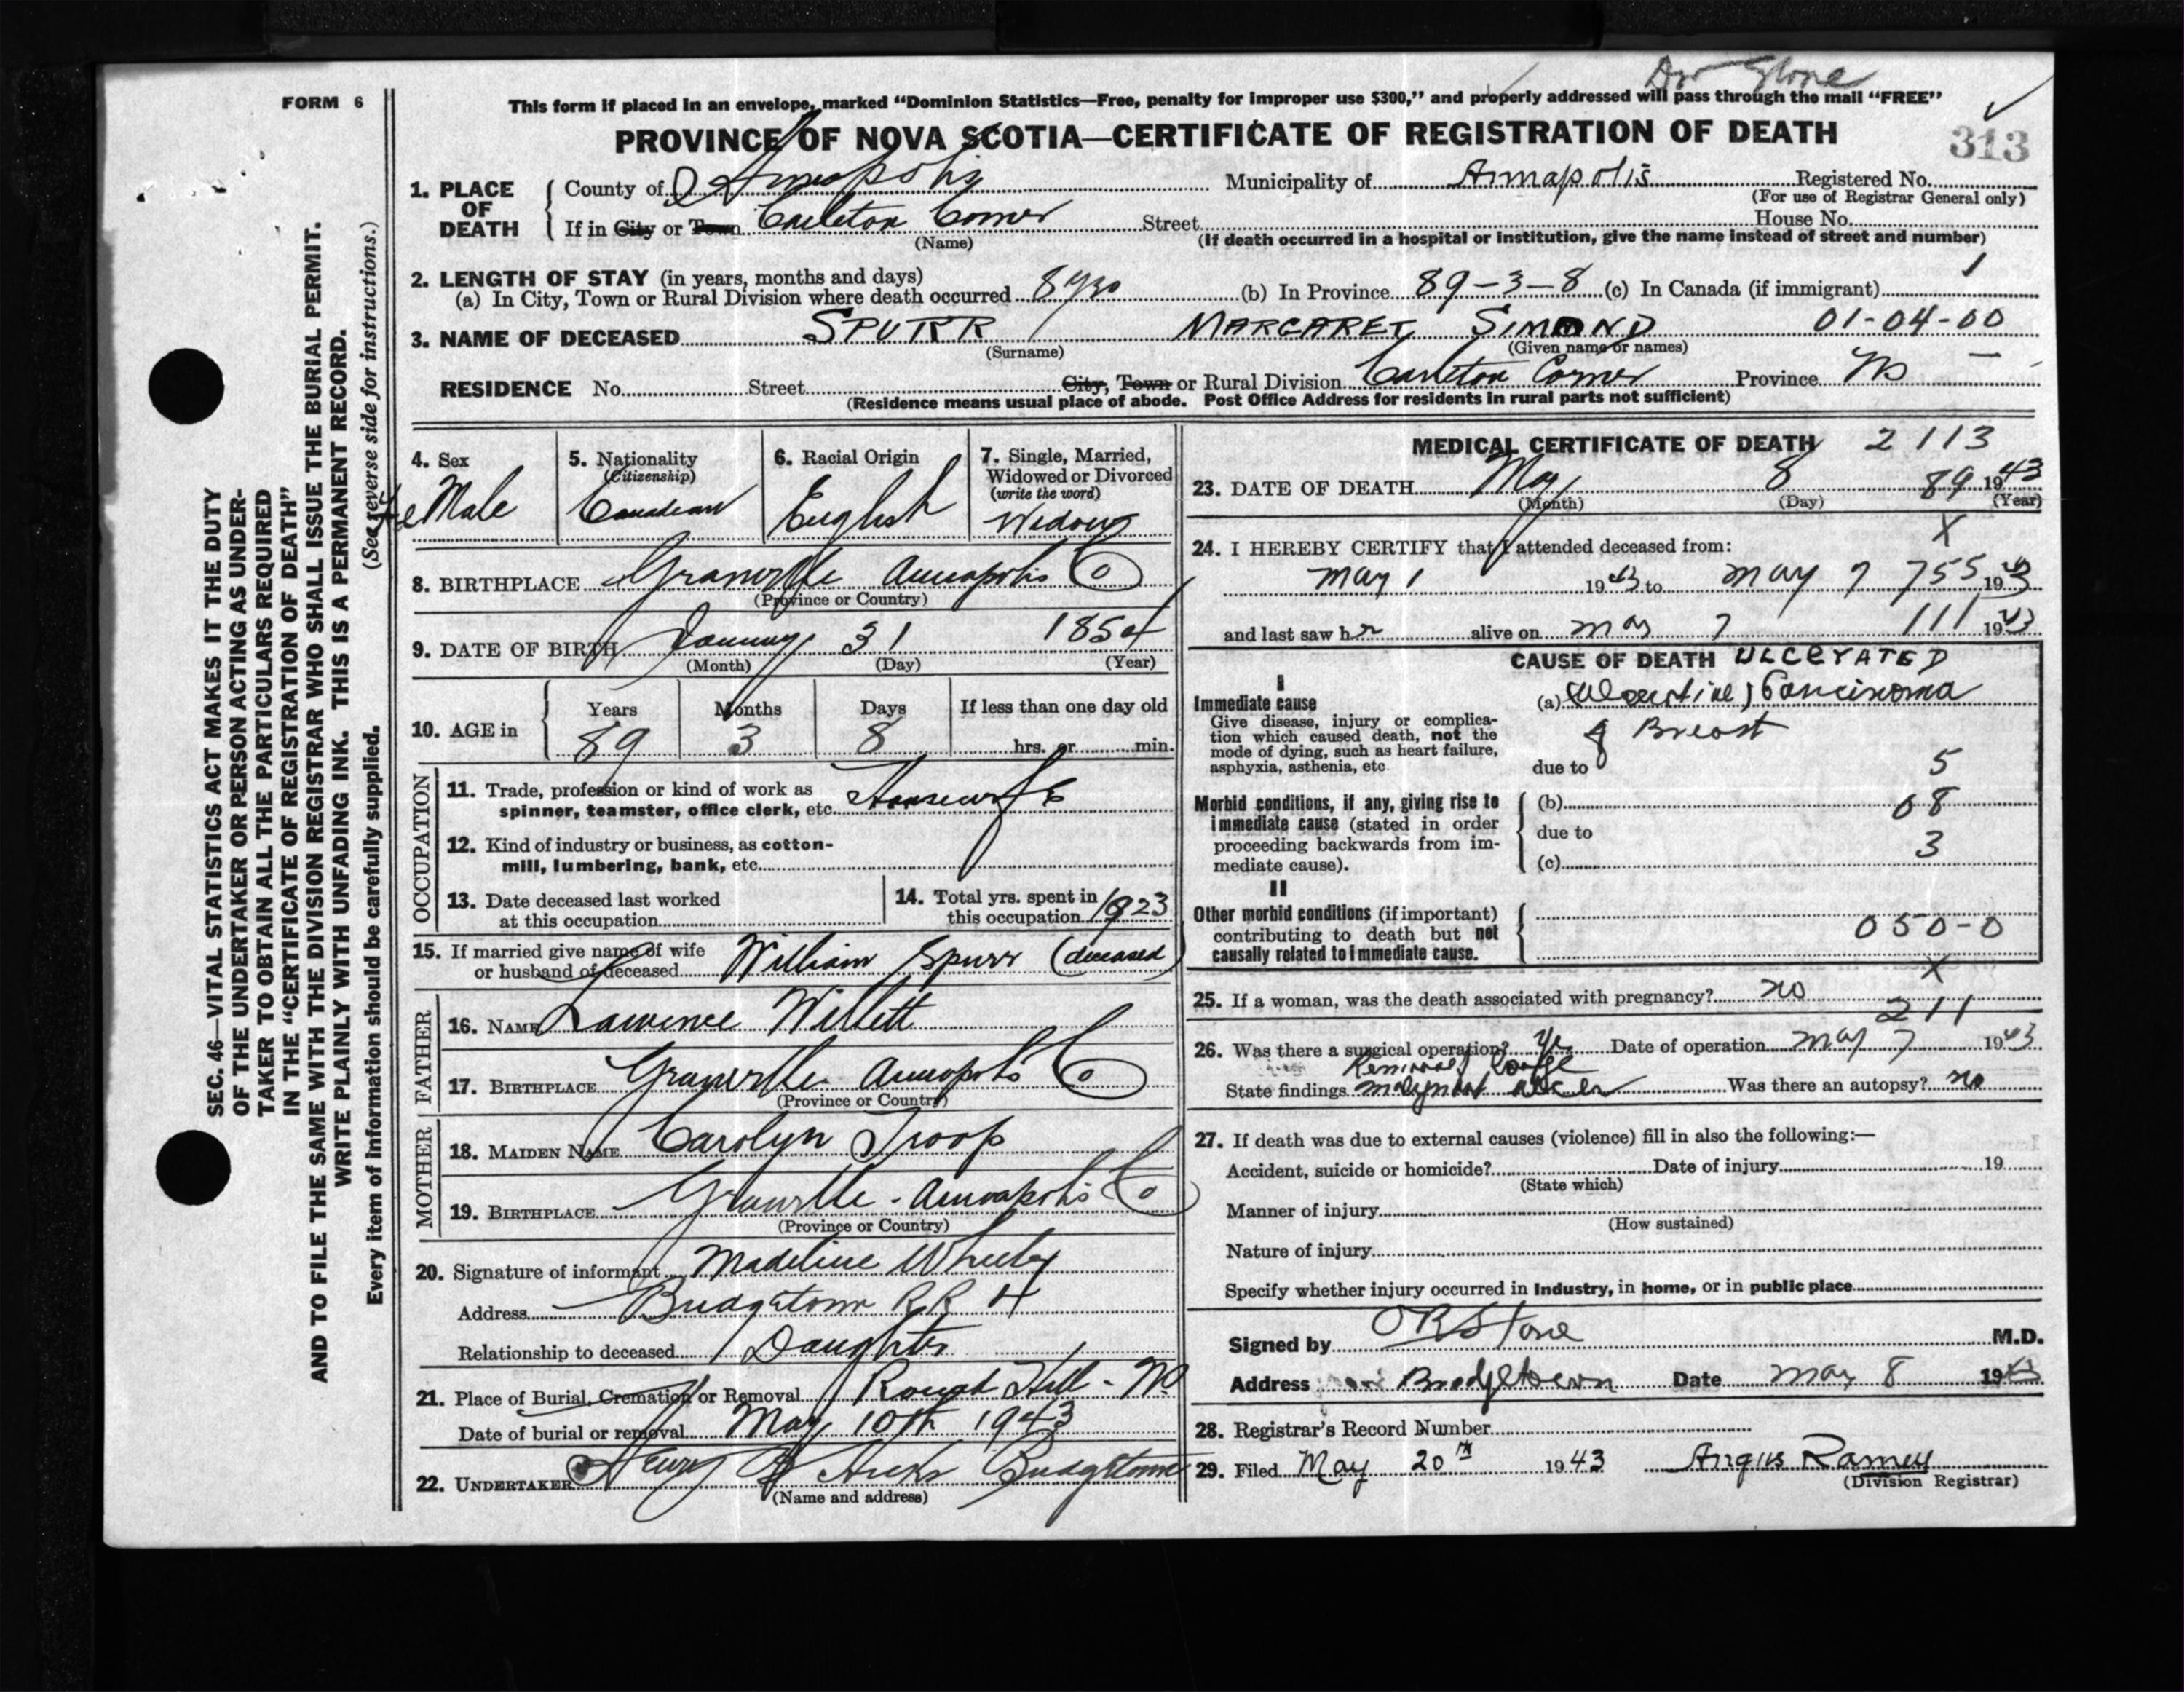 Dr Stone
FORM 6
This form if placed in an envelope, marked “Dominion Statistics—Free, penalty for improper use $300,” and properly addressed will pass through the mail “FREE”
PROVINCE OF NOVA SCOTIA—CERTIFICATE OF REGISTRATION OF DEATH
313
1. PLACE OF DEATH
County of Annapolis Municipality of Annapolis Registered No.
(For use of Registrar General only)
If in City or Town Carleton Corner Street House No.
(Name) (If death occurred in a hospital or institution, give the name instead of street and number)
2. LENGTH OF STAY (in years, months and days) 1
(a) In City, Town or Rural Division where death occurred 8 yrs (b) In Province 89-3-8 (c) In Canada (if immigrant)
3. NAME OF DECEASED SPURR MARGARET SIMOND 01-04-00
(Surname) (Given name or names)
RESIDENCE No. Street City, Town or Rural Division Carleton Corner Province NS —
(Residence means usual place of abode. Post Office Address for residents in rural parts not sufficient)
4. Sex
feMale
5. Nationality
(Citizenship)
Canadian
6. Racial Origin
English
7. Single, Married,
Widowed or Divorced
(write the word)
Widow
8. BIRTHPLACE Granville Annapolis Co
(Province or Country)
9. DATE OF BIRTH January 31 1854
(Month) (Day) (Year)
10. AGE in
Years Months Days If less than one day old
89 3 8 hrs. or min.
OCCUPATION
11. Trade, profession or kind of work as
spinner, teamster, office clerk, etc. Housewife
12. Kind of industry or business, as cotton-
mill, lumbering, bank, etc.
13. Date deceased last worked
at this occupation
14. Total yrs. spent in
this occupation 1923
15. If married give name of wife
or husband of deceased William Spurr (deceased)
FATHER
16. NAME Lawrence Willett
17. BIRTHPLACE Granville Annapolis Co
(Province or Country)
MOTHER
18. MAIDEN NAME Carolyn Troop
19. BIRTHPLACE Granville - Annapolis Co
(Province or Country)
20. Signature of informant Madeline
Address Bridgetown RR 4
Relationship to deceased Daughter
21. Place of Burial, Cremation or Removal Round Hill - NS
Date of burial or removal May 10th 1943
22. UNDERTAKER Henry Hicks Bridgetown
(Name and address)
MEDICAL CERTIFICATE OF DEATH 2113
23. DATE OF DEATH May 8 89 1943
(Month) (Day) (Year)
X
24. I HEREBY CERTIFY that I attended deceased from:
May 1 1943 to May 7 755 1943
and last saw her alive on May 7 111 1943
CAUSE OF DEATH ULCERATED
I
Immediate cause
Give disease, injury or complica-
tion which caused death, not the
mode of dying, such as heart failure,
asphyxia, asthenia, etc.
(a) Carcinoma
of Breast
due to 5
Morbid conditions, if any, giving rise to
immediate cause (stated in order
proceeding backwards from im-
mediate cause).
(b) 08
due to
(c) 3
II
Other morbid conditions (if important)
contributing to death but not
causally related to immediate cause.
050-0
X
25. If a woman, was the death associated with pregnancy? no
211
26. Was there a surgical operation? Yes Date of operation May 7 1943
Removal Large
State findings malignant ulcer Was there an autopsy? no
27. If death was due to external causes (violence) fill in also the following:—
Accident, suicide or homicide? Date of injury 19
(State which)
Manner of injury
(How sustained)
Nature of injury
Specify whether injury occurred in industry, in home, or in public place
Signed by O R Stone M.D.
Address Bridgetown Date May 8 1943
28. Registrar's Record Number
29. Filed May 20th 1943 Angus Ramey
(Division Registrar)
SEC. 46—VITAL STATISTICS ACT MAKES IT THE DUTY
OF THE UNDERTAKER OR PERSON ACTING AS UNDER-
TAKER TO OBTAIN ALL THE PARTICULARS REQUIRED
IN THE “CERTIFICATE OF REGISTRATION OF DEATH”
AND TO FILE THE SAME WITH THE DIVISION REGISTRAR WHO SHALL ISSUE THE BURIAL PERMIT.
WRITE PLAINLY WITH UNFADING INK. THIS IS A PERMANENT RECORD.
Every item of information should be carefully supplied. (See reverse side for instructions.)